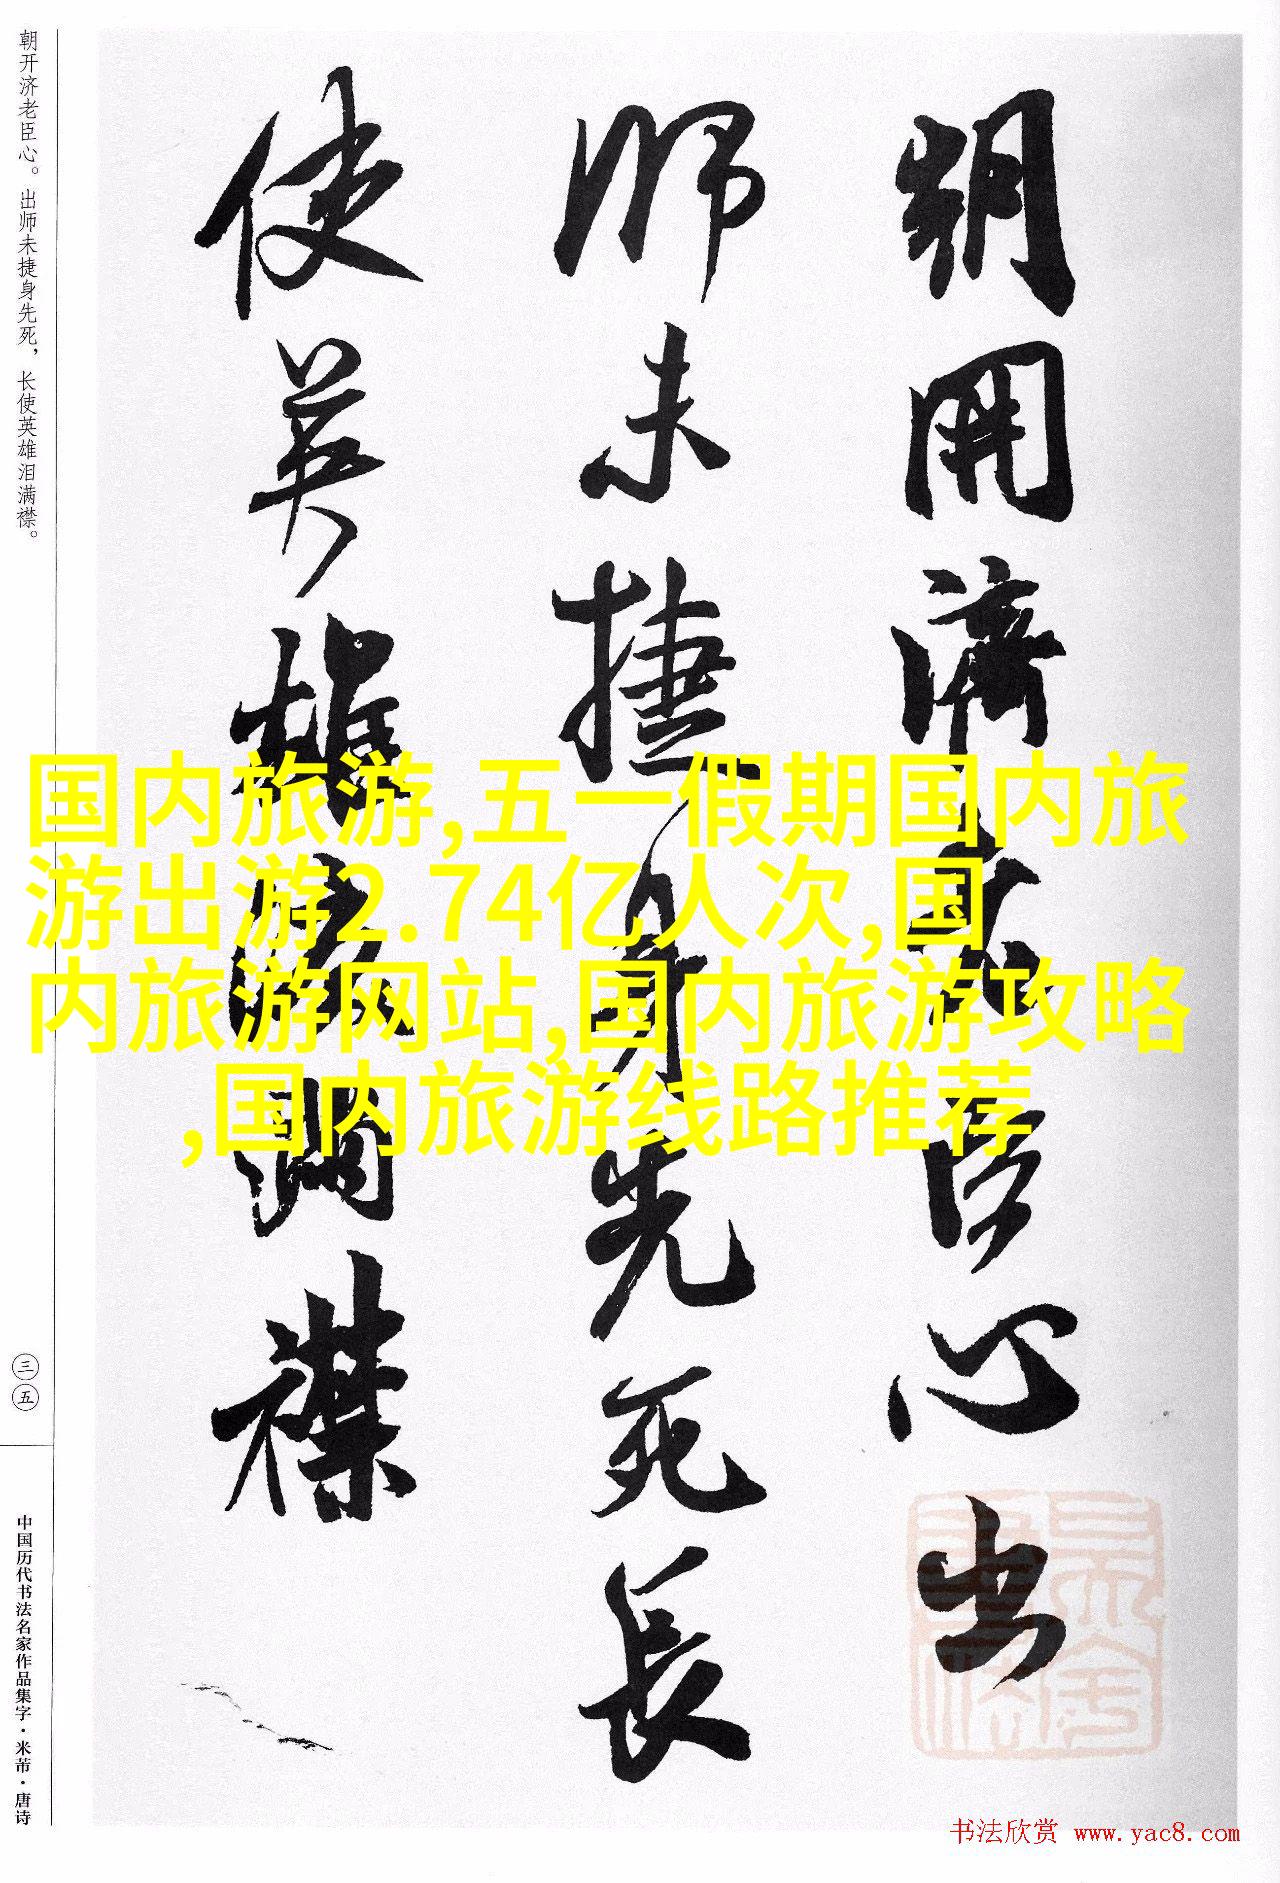 朝开济老臣心。出师未捷身先死，长使英雄泪满襟。
三五
中国历代书法名家作品集字·米芾·唐诗
朝開濟老臣心出
師未捷身先死長
使英雄淚滿襟
国内旅游,五一假期国内旅
游出游2.74亿人次,国
内旅游网站,国内旅游攻略
,国内旅游线路推荐
书法欣赏 www.yac8.com